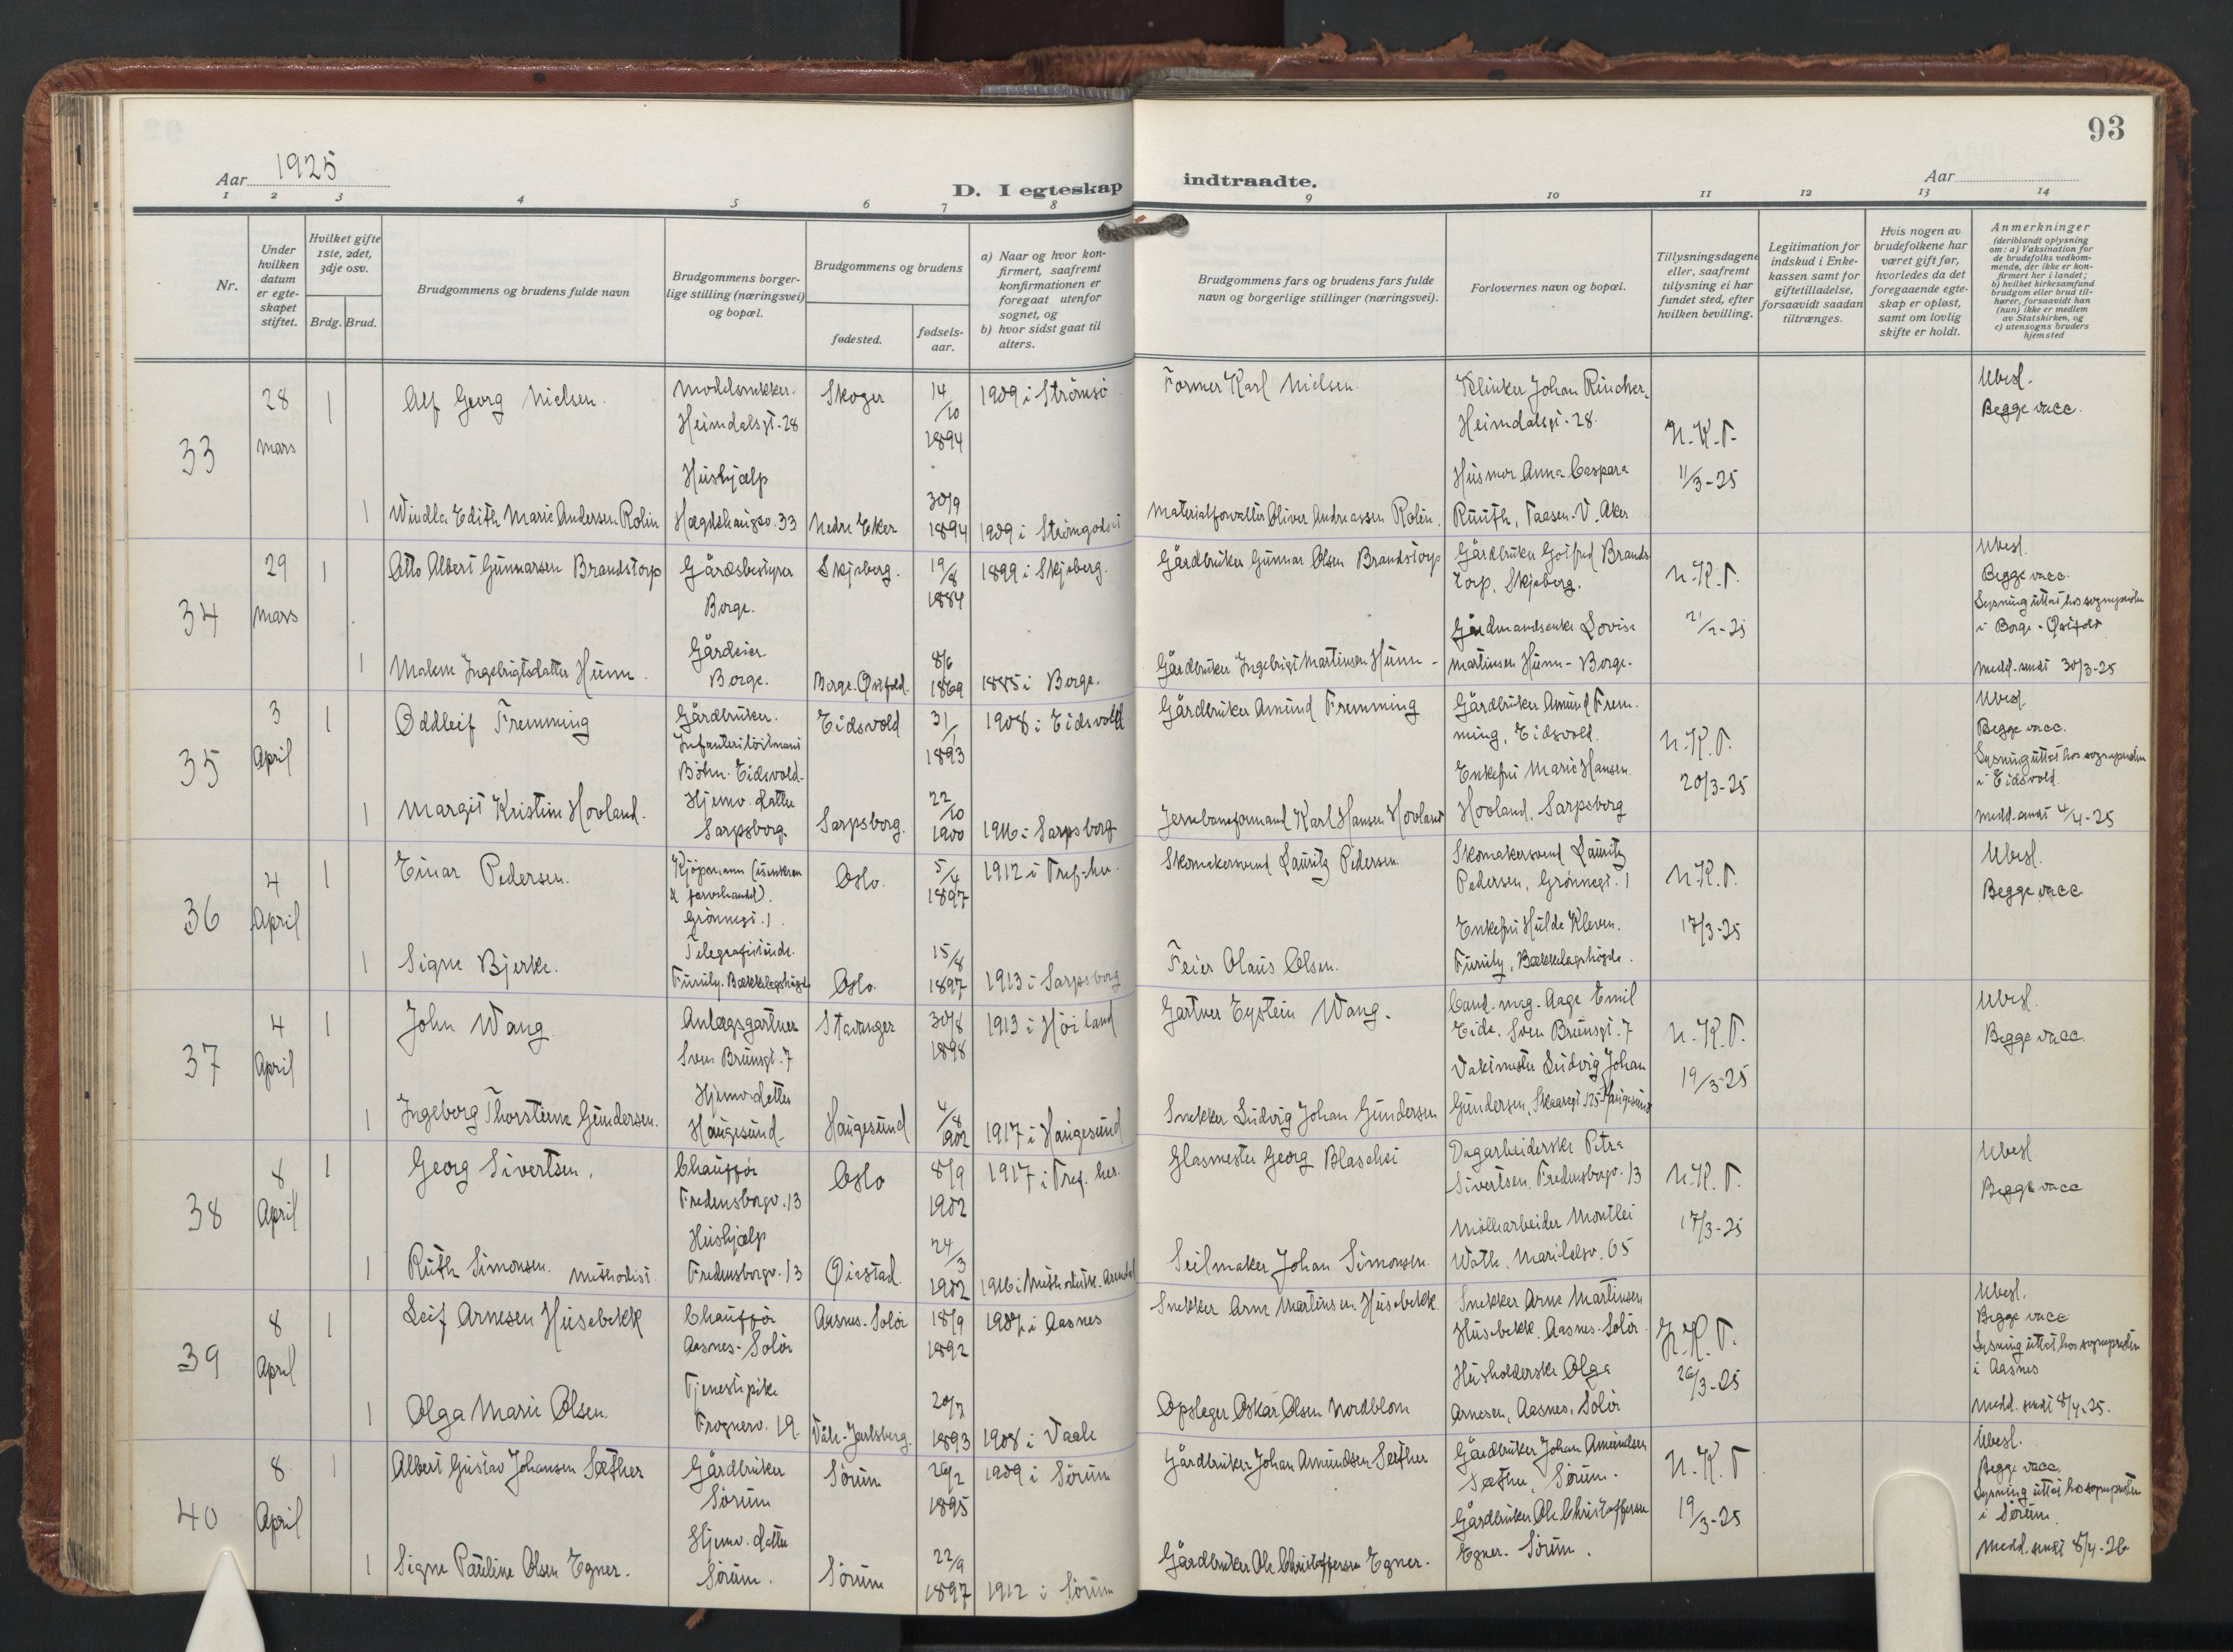 93
Aar 1925
D. I egteskap indtraadte.
Aar
1 2 3 4 5 6 7 8 9 10 11 12 13 14
Nr.
Under hvilken datum er egteskapet stiftet.
Hvilket gifte 1ste, 2det, 3dje osv.
Brdg. Brud.
Brudgommens og brudens fulde navn
Brudgommens borgerlige stilling (næringsvei) og bopæl.
Brudgommens og brudens
fødested.
fødselsaar.
a) Naar og hvor konfirmert, saafremt konfirmationen er foregaat utenfor sognet, og
b) hvor sidst gaat til alters.
Brudgommens fars og brudens fars fulde navn og borgerlige stillinger (næringsvei).
Forlovernes navn og bopæl.
Tillysningsdagene eller, saafremt tillysning ei har fundet sted, efter hvilken bevilling.
Legitimation for indskud i Enkekassen samt for giftetilladelse, forsaavidt saadan tiltrænges.
Hvis nogen av brudefolkene har været gift før, hvorledes da det foregaaende egteskap er opløst, samt om lovlig skifte er holdt.
Anmerkninger
(deriblandt oplysning om: a) Vaksination for de brudefolks vedkommende, der ikke er konfirmert her i landet; b) hvilket kirkesamfund brudgom eller brud tilhører, forsaavidt han (hun) ikke er medlem av Statskirken, og c) utensogns bruders hjemsted
33
28 mars
1 Alf Georg Nielsen.
Modelsnekker. Heimdalsgt. 28
Skoger
14/10 1894
1909 i Strömsö
Former Karl Nielsen.
Klinker Johan
Heimdalsgt. 28.
N.K.T.
11/3-25
Ubesl.
Begge vacc.
1 Windla Edith Marie Andersen Rolin
Hushjælp
Hægdehaugsv. 33
Nedre Eker
30/9 1894
1909 i Strömgodset
Materialforvalter Oliver Andreassen Rolin.
Husmor Anna Caspara
Ruuth, Taasen. V. Aker
34
29 mars
1 Otto Albert Gunnarsen Brandstorp
Gårdsbestyrer
Borge.
Skjeberg.
19/8 1884
1899 i Skjeberg.
Gårdbruker Gunnar Olsen Brandstorp
Gårdbruker Gotfred Brandstorp, Skjeberg.
N.K.T.
Ubesl.
Begge vacc.
Lysning uttat hos sognepresten
i Borge - Østfold
medd. sendt 30/3-25
1 Malene Ingebrigtsdatter Hunn.
Gårdeier
Borge.
Borge. Østfold.
8/6 1869
1885 i Borge.
Gårdbruker Ingebrigt Martinsen Hunn -
Gårdmandsenke Lovise
Martinsen Hunn - Borge.
35
3 April
1 Oddleif Fremming
Gårdbruker.
Infanteriløitnant
Böhn. Eidsvold.
Eidsvold
31/1 1893
1908 i Eidsvold
Gårdbruker Amund Fremming
Gårdbruker Amund Fremming, Eidsvold.
N.K.T.
20/3-25
Ubesl.
Begge vacc.
Lysning uttat hos sognepresten
i Eidsvold.
medd. sendt 4/4-25
1 Margit Kristine Hovland.
Hjemv. datter
Sarpsborg.
Sarpsborg.
22/10 1900
1916 i Sarpsborg
Jernbaneformand Karl Hansen Hovland
Enkefru Marie Hansen
Hovland, Sarpsborg
36
4 April
1 Einar Pedersen.
Kjöpmann (isenkram
& farvehandel).
Grönnegt. 1.
Oslo.
5/4 1897
1912 i Tref. her
Skomakersvend Lauritz Pedersen.
Skomakersvend Lauritz
Pedersen, Grönnegt. 1
N.K.T.
17/3-25
Ubesl.
Begge vacc
1 Signe Bjerke.
Furuly. Bækkelagshögda
Oslo.
15/8 1897
1913 i Sarpsborg
Feier Olaus Olsen.
Enkefru Hulde Kleven.
Furuly, Bækkelagshögda.
37
4 April
1 John Wang.
Anlægsgartner
Sven Brunsgt. 7
Stavanger
30/8 1898
1913 i Höiland
Gartner Eystein Wang.
Cand. mag. Aage Emil
Eide. Sven Brunsgt. 7
N.K.T.
19/3-25
Ubesl.
Begge vacc.
1 Ingeborg Thorstiene Gundersen.
Hjemv. datter
Haugesund
Haugesund
4/8 1902
1917 i Haugesund
Snekker Ludvig Johan Gundersen
Vaktmester Ludvig Johan
Gundersen, Skaaregt. 125 Haugesund
38
8 April
1 Georg Sivertsen.
Chauffør
Fredensborgv. 13
Oslo
8/9 1902
1917 i Tref. her.
Glasmester Georg Blaschei
Dagarbeiderske Petra
Sivertsen. Fredensborgv. 13
N.K.T.
17/3-25
Ubesl.
Begge vacc
1 Ruth Simonsen. Methodist.
Hushjælp
Fredensborgv. 13
Øiestad
24/3 1902
1916 i Methodistk. Arendal
Seilmaker Johan Simonsen.
Möllearbeider
Maridalsv. 65
39
8 April
1 Leif Arnesen Husebekk
Chauffør
Aasnes. Solör
Aasnes. Solör
18/9 1892
1907 i Aasnes
Snekker Arne Martinsen Husebekk.
Snekker Arne Martinsen
Husebekk. Aasnes. Solör.
N.K.T.
26/3-25
Ubesl.
Begge vacc
Lysning uttat hos sognepresten
i Aasnes
medd. sendt 8/4-25.
1 Olga Marie Olsen.
Tjenestepike
Frognerv. 19.
Våle. Jarlsberg.
20/7 1893
1908 i Vaale
Opsleger Oskar Olsen Nordblom
Husholderske Olga
Arnesen, Aasnes. Solör
40
8 April
1 Albert Gustav Johansen Sæther
Gårdbruker
Sörum
Sörum
26/2 1895
1909 i Sörum
Gårdbruker Johan Amundsen Sæther
Gårdbruker Johan Amundsen
Sæther, Sörum.
N.K.T
19/3-25
Ubesl.
Begge vacc.
Lysning uttat hos sognepresten
i Sörum.
medd. sendt 8/4-26
1 Signe Pauline Olsen Egner.
Hjemv. datter
Sörum.
Sörum
22/9 1897
1912 i Sörum
Gårdbruker Ole Christoffersen Egner.
Gårdbruker Ole Christoffersen
Egner. Sörum.